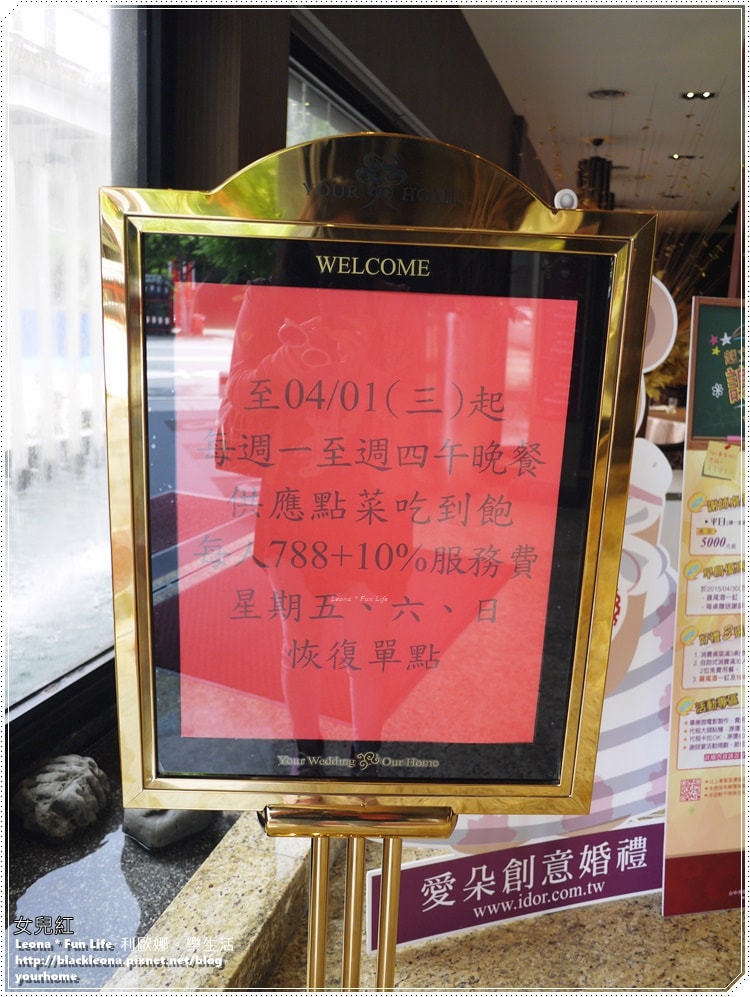 YOUR HOME
WELCOME
至04/01(三)起
每週一至週四午晚餐
供應點菜吃到飽
每人788+10%服務費
星期五、六、日
恢復單點
Leona * Fun Life
Your Wedding Our Home
愛朵創意婚禮
www.idor.com.tw
5000
活動專區
女兒紅
Leona * Fun Life 利歐娜．樂生活
http://blackleona.pixnet.net/blog
yourhome